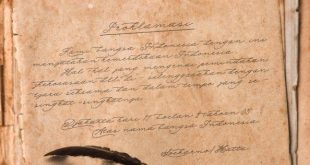 Proklamasi
Kami bangsa Indonesia dengan ini
menjatakan kemerdekaan Indonesia
Hal-hal yang mengenai pemindahan
kekuasaan d.l.l. diselenggarakan dengan
tjara seksama dan dalam tempo yang se-
singkat-singkatnja.
Djakarta hari 17 boelan 8 tahoen 05
Atas nama bangsa Indonesia
Soekarno/Hatta